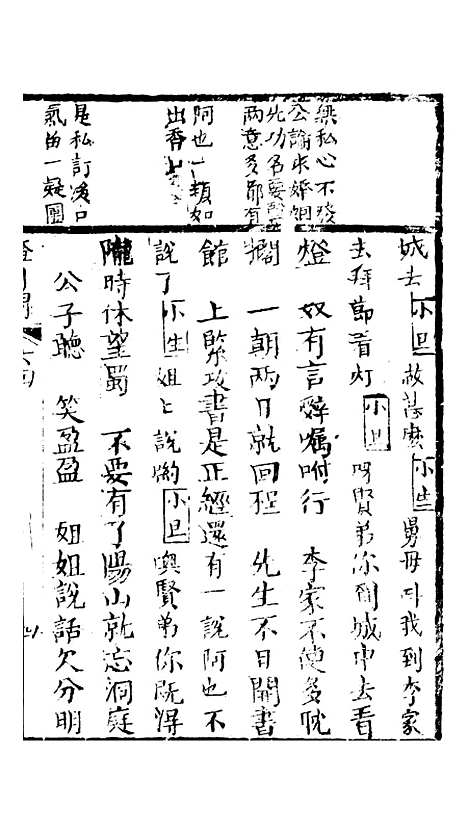 無私心不發
公論求婚姻
先功名要緊
兩意多郎有
阿也一類如
出香上
是私訂海口
氣的一疑團
城去小旦敢甚麽小生舅母叫我到李家
去拜節看灯小旦呀賢弟你到城中去看
燈　奴有言辭囑咐行　李家不使多耽
擱　一朝兩日就回程　先生不日開書
館　上緊攻書是正經還有一說阿也不
說了小生姐上說喲小旦噢賢弟你既得
隴時休望蜀　不要有了陽山就忘洞庭
公子聽　笑盈盈　姐姐說話欠分明